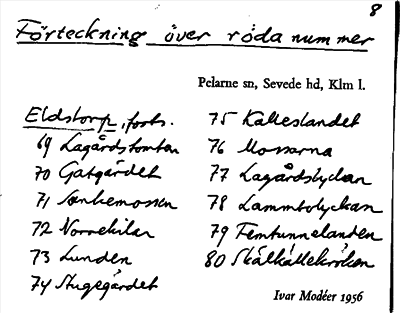 8
Förteckning över röda nummer
Pelarne sn, Sevede hd, Klm l.
Eldstorp, forts.
69 Lagårdstomten
70 Gatgärdet
71 Senkemossen
72 Norrekilen
73 Lunden
74 Stugegärdet
75 Kalleslandet
76 Mossarna
77 Lagårdslyckan
78 Lammtolyckan
79 Femtunnelanden
80 Skålkällekröken
Ivar Modéer 1956